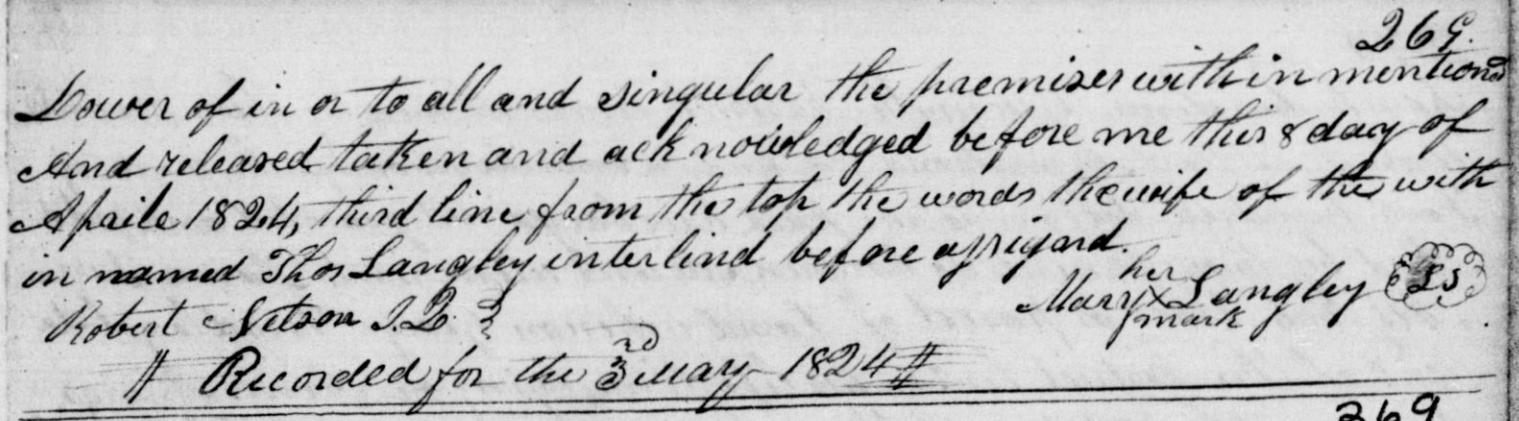 269.
Dower of in or to all and singular the premises with in mentiond
And released taken and acknowledged before me this 8 day of
Apraile 1824, third line from the top the words the wife of the with
in named Thos Langley interlend before assignd.
her
Mary X Langley LS
mark
Robert Nelson J.Q.
Recorded for the 3rd May 1824
269